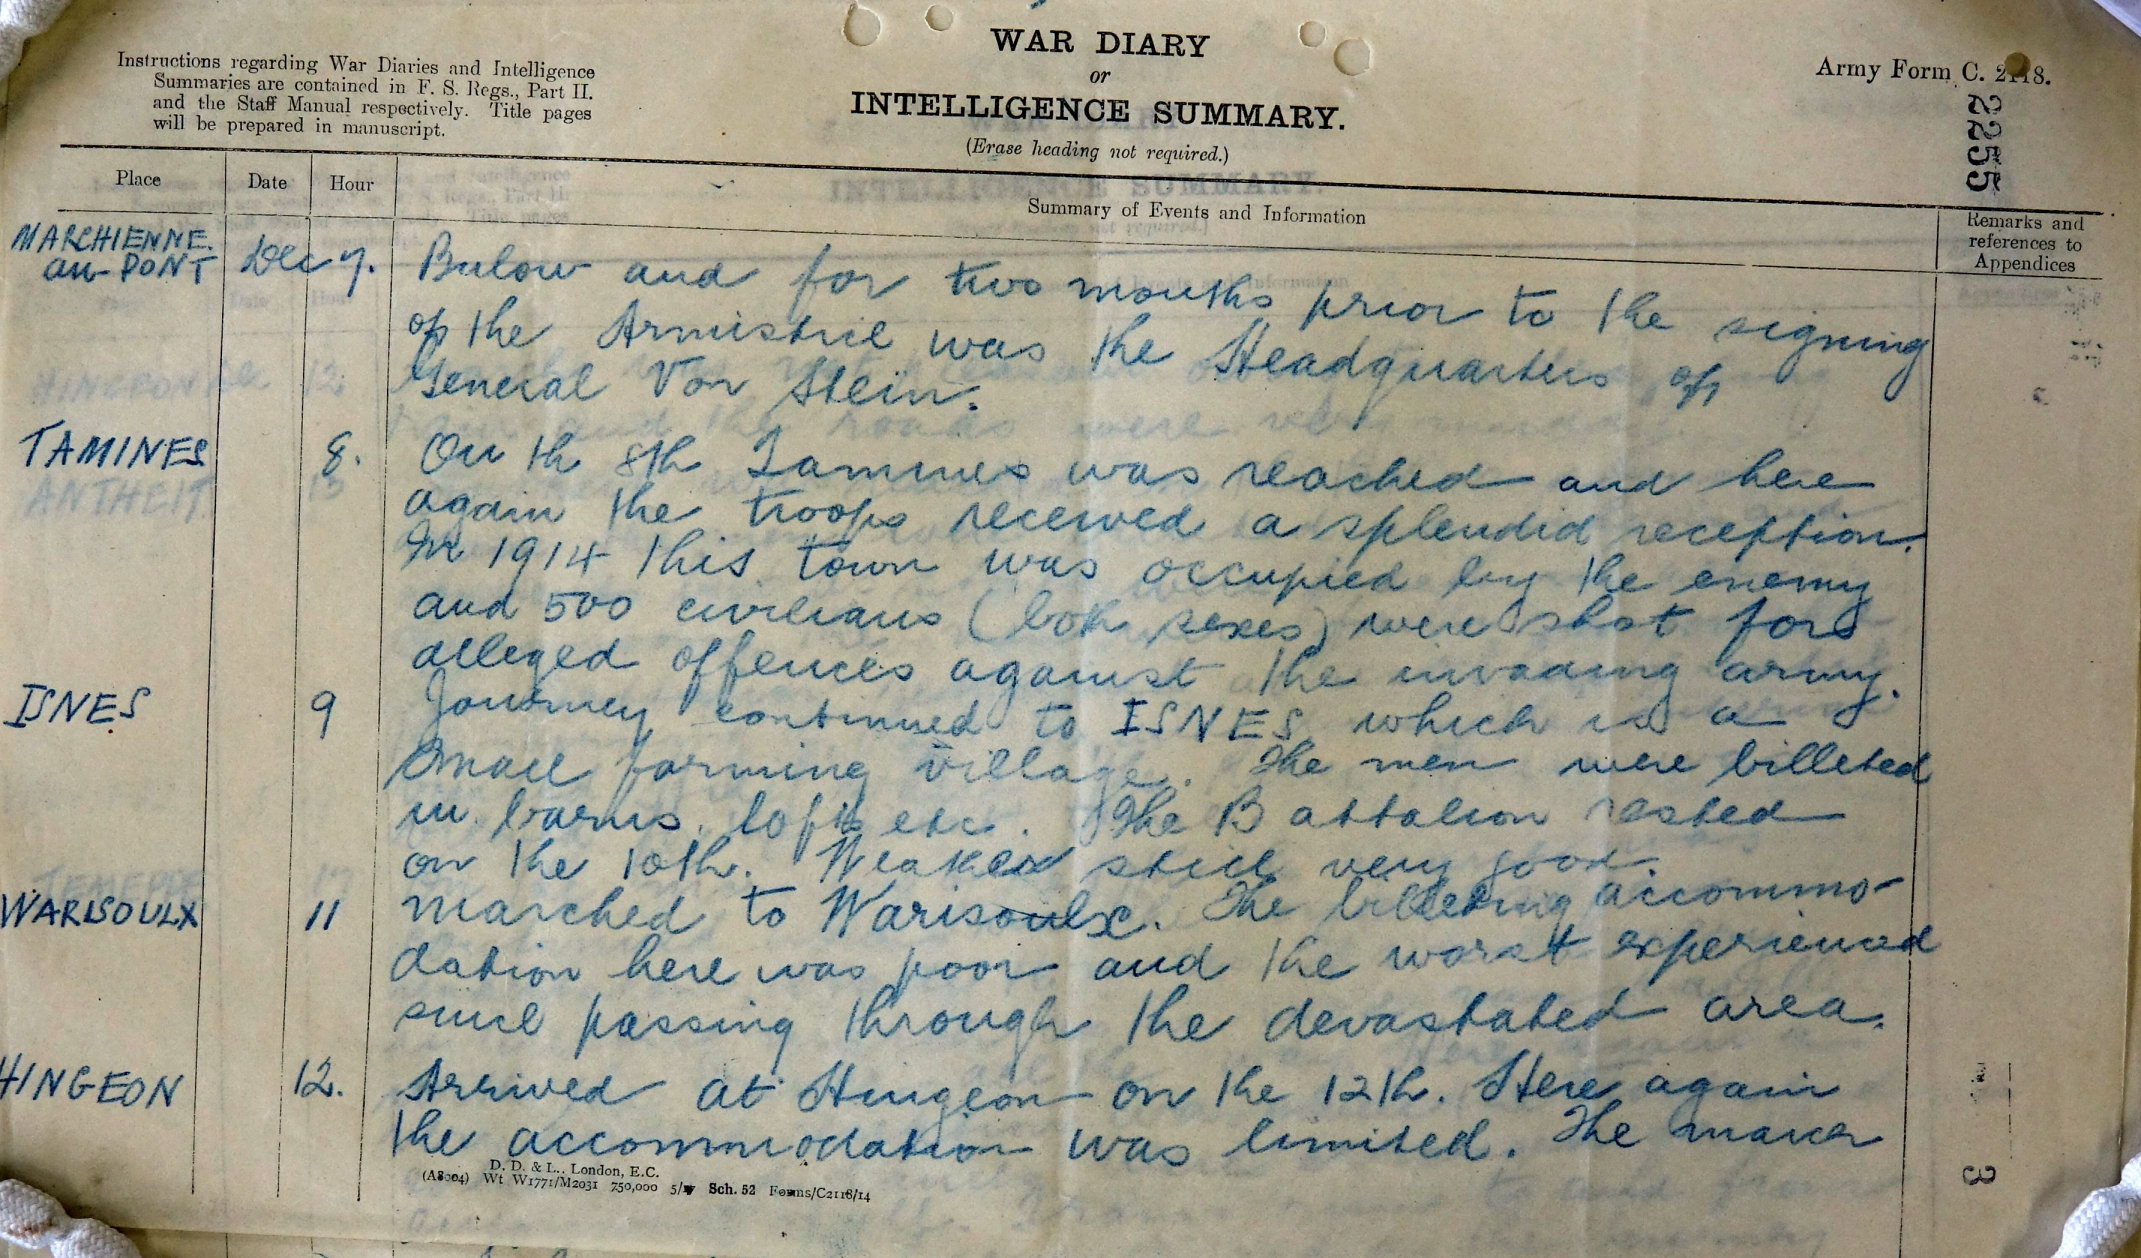 Instructions regarding War Diaries and Intelligence
Summaries are contained in F. S. Regs., Part II.
and the Staff Manual respectively. Title pages
will be prepared in manuscript.
WAR DIARY
or
INTELLIGENCE SUMMARY.
(Erase heading not required.)
Army Form C. 2118.
2255
Place Date Hour Summary of Events and Information Remarks and
references to
Appendices
MARCHIENNE.
au PONT Dec 7. Bulow and for two months prior to the signing
of the Armistice was the Headquarters of
General Von Stein.
TAMINES 8. On th 8th Tamines was reached and here
again the troops received a splendid reception.
In 1914 this town was occupied by the enemy
and 500 civilians (both sexes) were shot for
alleged offences against the invading army.
ISNES 9 Journey continued to ISNES which is a
small farming village. The men were billeted
in barns, lofts etc. The Battalion rested
on the 10th. Weather still very good.
WARISOULX 11 Marched to Warisoulx. The billeting accommo-
dation here was poor and the worst experienced
since passing through the devastated area.
HINGEON 12. Arrived at Hingeon on the 12th. Here again
the accommodation was limited. The march
D. D. & L., London, E.C.
(A8004) Wt W1771/M2031 750,000 5/17 Sch. 52 Forms/C2118/14
3